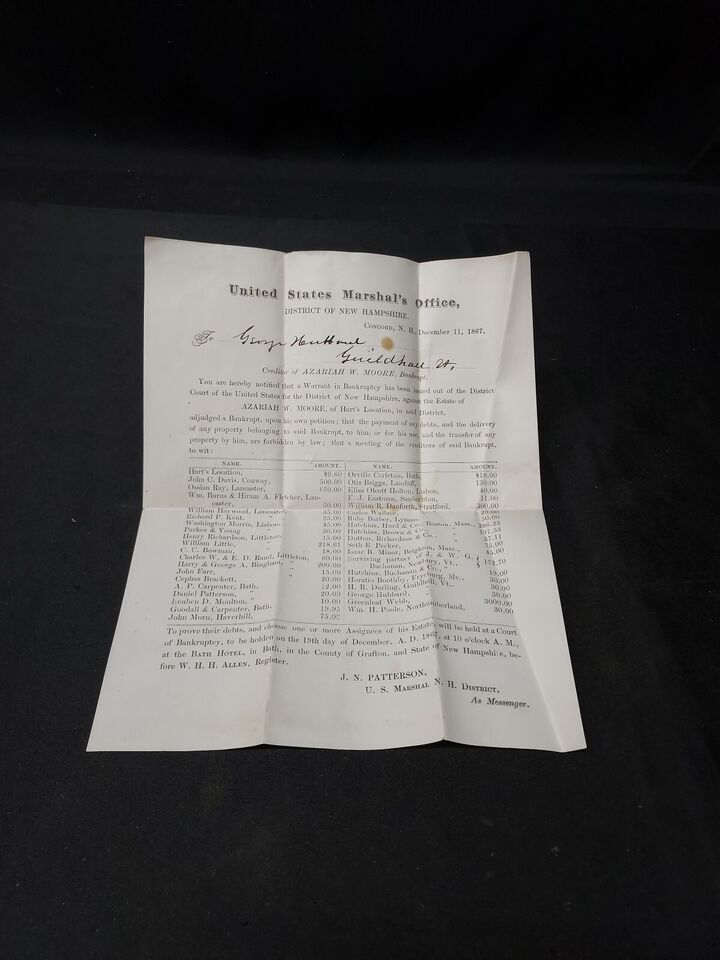 United States Marshal's Office,
DISTRICT OF NEW HAMPSHIRE.
CONCORD, N. H., December 11, 1867.
To George Hubbard
Guildhall Vt,
Creditor of AZARIAH W. MOORE, Bankrupt.
You are hereby notified that a Warrant in Bankruptcy has been issued out of the District
Court of the United States for the District of New Hampshire, against the Estate of
AZARIAH W. MOORE, of Hart's Location, in said District,
adjudged a Bankrupt, upon his own petition; that the payment of any debts, and the delivery
of any property belonging to said Bankrupt, to him, or for his use, and the transfer of any
property by him, are forbidden by law; that a meeting of the creditors of said Bankrupt,
to wit:
NAME. AMOUNT.
Hart's Location, $9.60
John C. Davis, Conway, 500.00
Ossian Ray, Lancaster, 650.00
Wm. Burns & Hiram A. Fletcher, Lancaster, 50.00
William Haywood, Lancaster, 35.00
Richard P. Kent, 25.00
Washington Morris, Lisbon, 45.00
Parker & Young 50.00
Henry Richardson, Littleton, 15.00
William Little, " 218.61
C. C. Bowman, " 18.00
Charles W. & E. D. Rand, Littleton, 60.00
Harry & George A. Bingham, " 200.00
John Farr, " 15.00
Cephas Brackett, " 20.00
A. P. Carpenter, Bath, 12.00
Daniel Patterson, " 20.00
Reuben D. Moulton, " 10.00
Goodall & Carpenter, Bath, 19.95
John Morn, Haverhill, 75.00
NAME. AMOUNT.
Orville Carleton, Bath, $18.00
Otis Briggs, Landaff, 150.00
Elias Olcott Holton, Lisbon, 40.00
F. J. Eastman, Sanbornton, 11.00
William R. Danforth, Stratford, 300.00
Carlos Wallace, 20.00
Ruby Barber, Lyman, 50.00
Hutchins, Hurd & Co., Boston, Mass., 186.23
Hutchins, Brown & Co., " 197.53
Dutton, Richardson & Co., " 57.11
Seth E. Pecker, 15.00
Isaac B. Minor, Brighton, Mass., 45.00
Surviving partner of J. & W. G. Buchanan, Newbury, Vt., 172.20
Hutchins, Buchanan & Co., " 19.00
Horatio Boothby, Fryeburg, Me., 30.00
H. R. Darling, Guildhall, Vt., 30.00
George Hubbard, " 30.00
Greenleaf Webb, 3000.00
Wm. H. Poole, Northumberland, 30.00
To prove their debts, and choose one or more Assignees of his Estate, will be held at a Court
of Bankruptcy, to be holden on the 19th day of December, A. D. 1867, at 10 o'clock A. M.,
at the BATH HOTEL, in Bath, in the County of Grafton, and State of New Hampshire, be-
fore W. H. H. ALLEN, Register.
J. N. PATTERSON,
U. S. MARSHAL N. H. DISTRICT,
As Messenger.